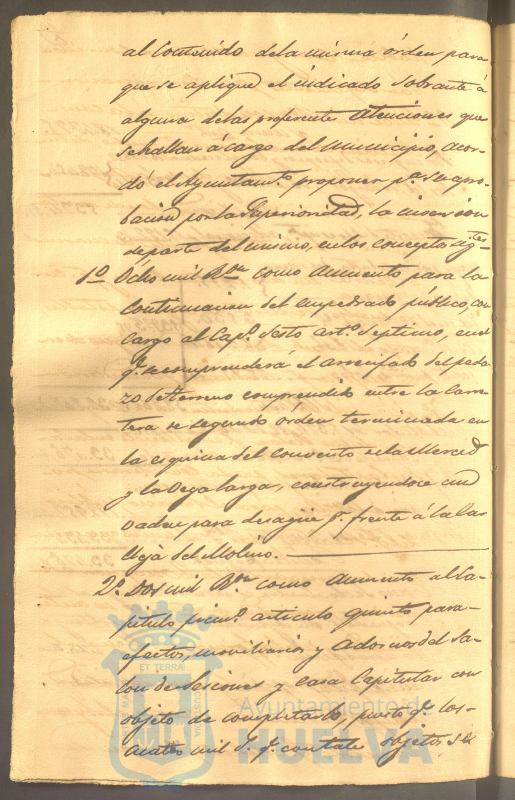 al Contenido dela misma órden para
que se aplique el indicado Sobrante á
alguna delas preferente Atenciones que
sehallan á cargo del Municipio, acor-
dó el Ayuntam.º proponer p.ª su apro-
bacion por la Superioridad, la inversion
departe del mismo, enlos conceptos sig.tes
1º Ocho mil R.on como aumento para la
Continuacion del empedrado público, con
Cargo al Cap.º Sesto art.º Septimo, en el
q.e se comprenderá el arrecifado del peda
zo de terreno comprendido entre la Carre-
tera de segundo órden terminada en
la esquina del Convento dela Merced
y la Vega larga, construyendose un
vaden para desagüe p.r frente á la Ca
lleja del Molino.
2º Dos mil R.on como aumento al Ca-
pitulo prim.º articulo quinto para
efectos, moviliario y adornos del Sa-
lon de Sesiones y casa Capitular con
objeto de completarlo, puesto q.e los
cuatro mil d. q.e constate objetos se
ET TERRÆ
Ayuntamiento de
HUELVA